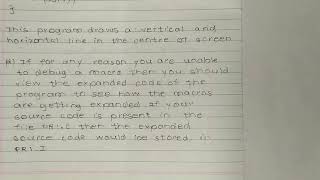 }
This program draws a vertical and
horizontal line in the centre of screen
If for any reason you are unable
to debug a macro then you should
view the expanded code of the
program to see how the macros
are getting expanded if your
source code is present in the
file PR1.C then the expanded
source code would be stored in
PR1.I